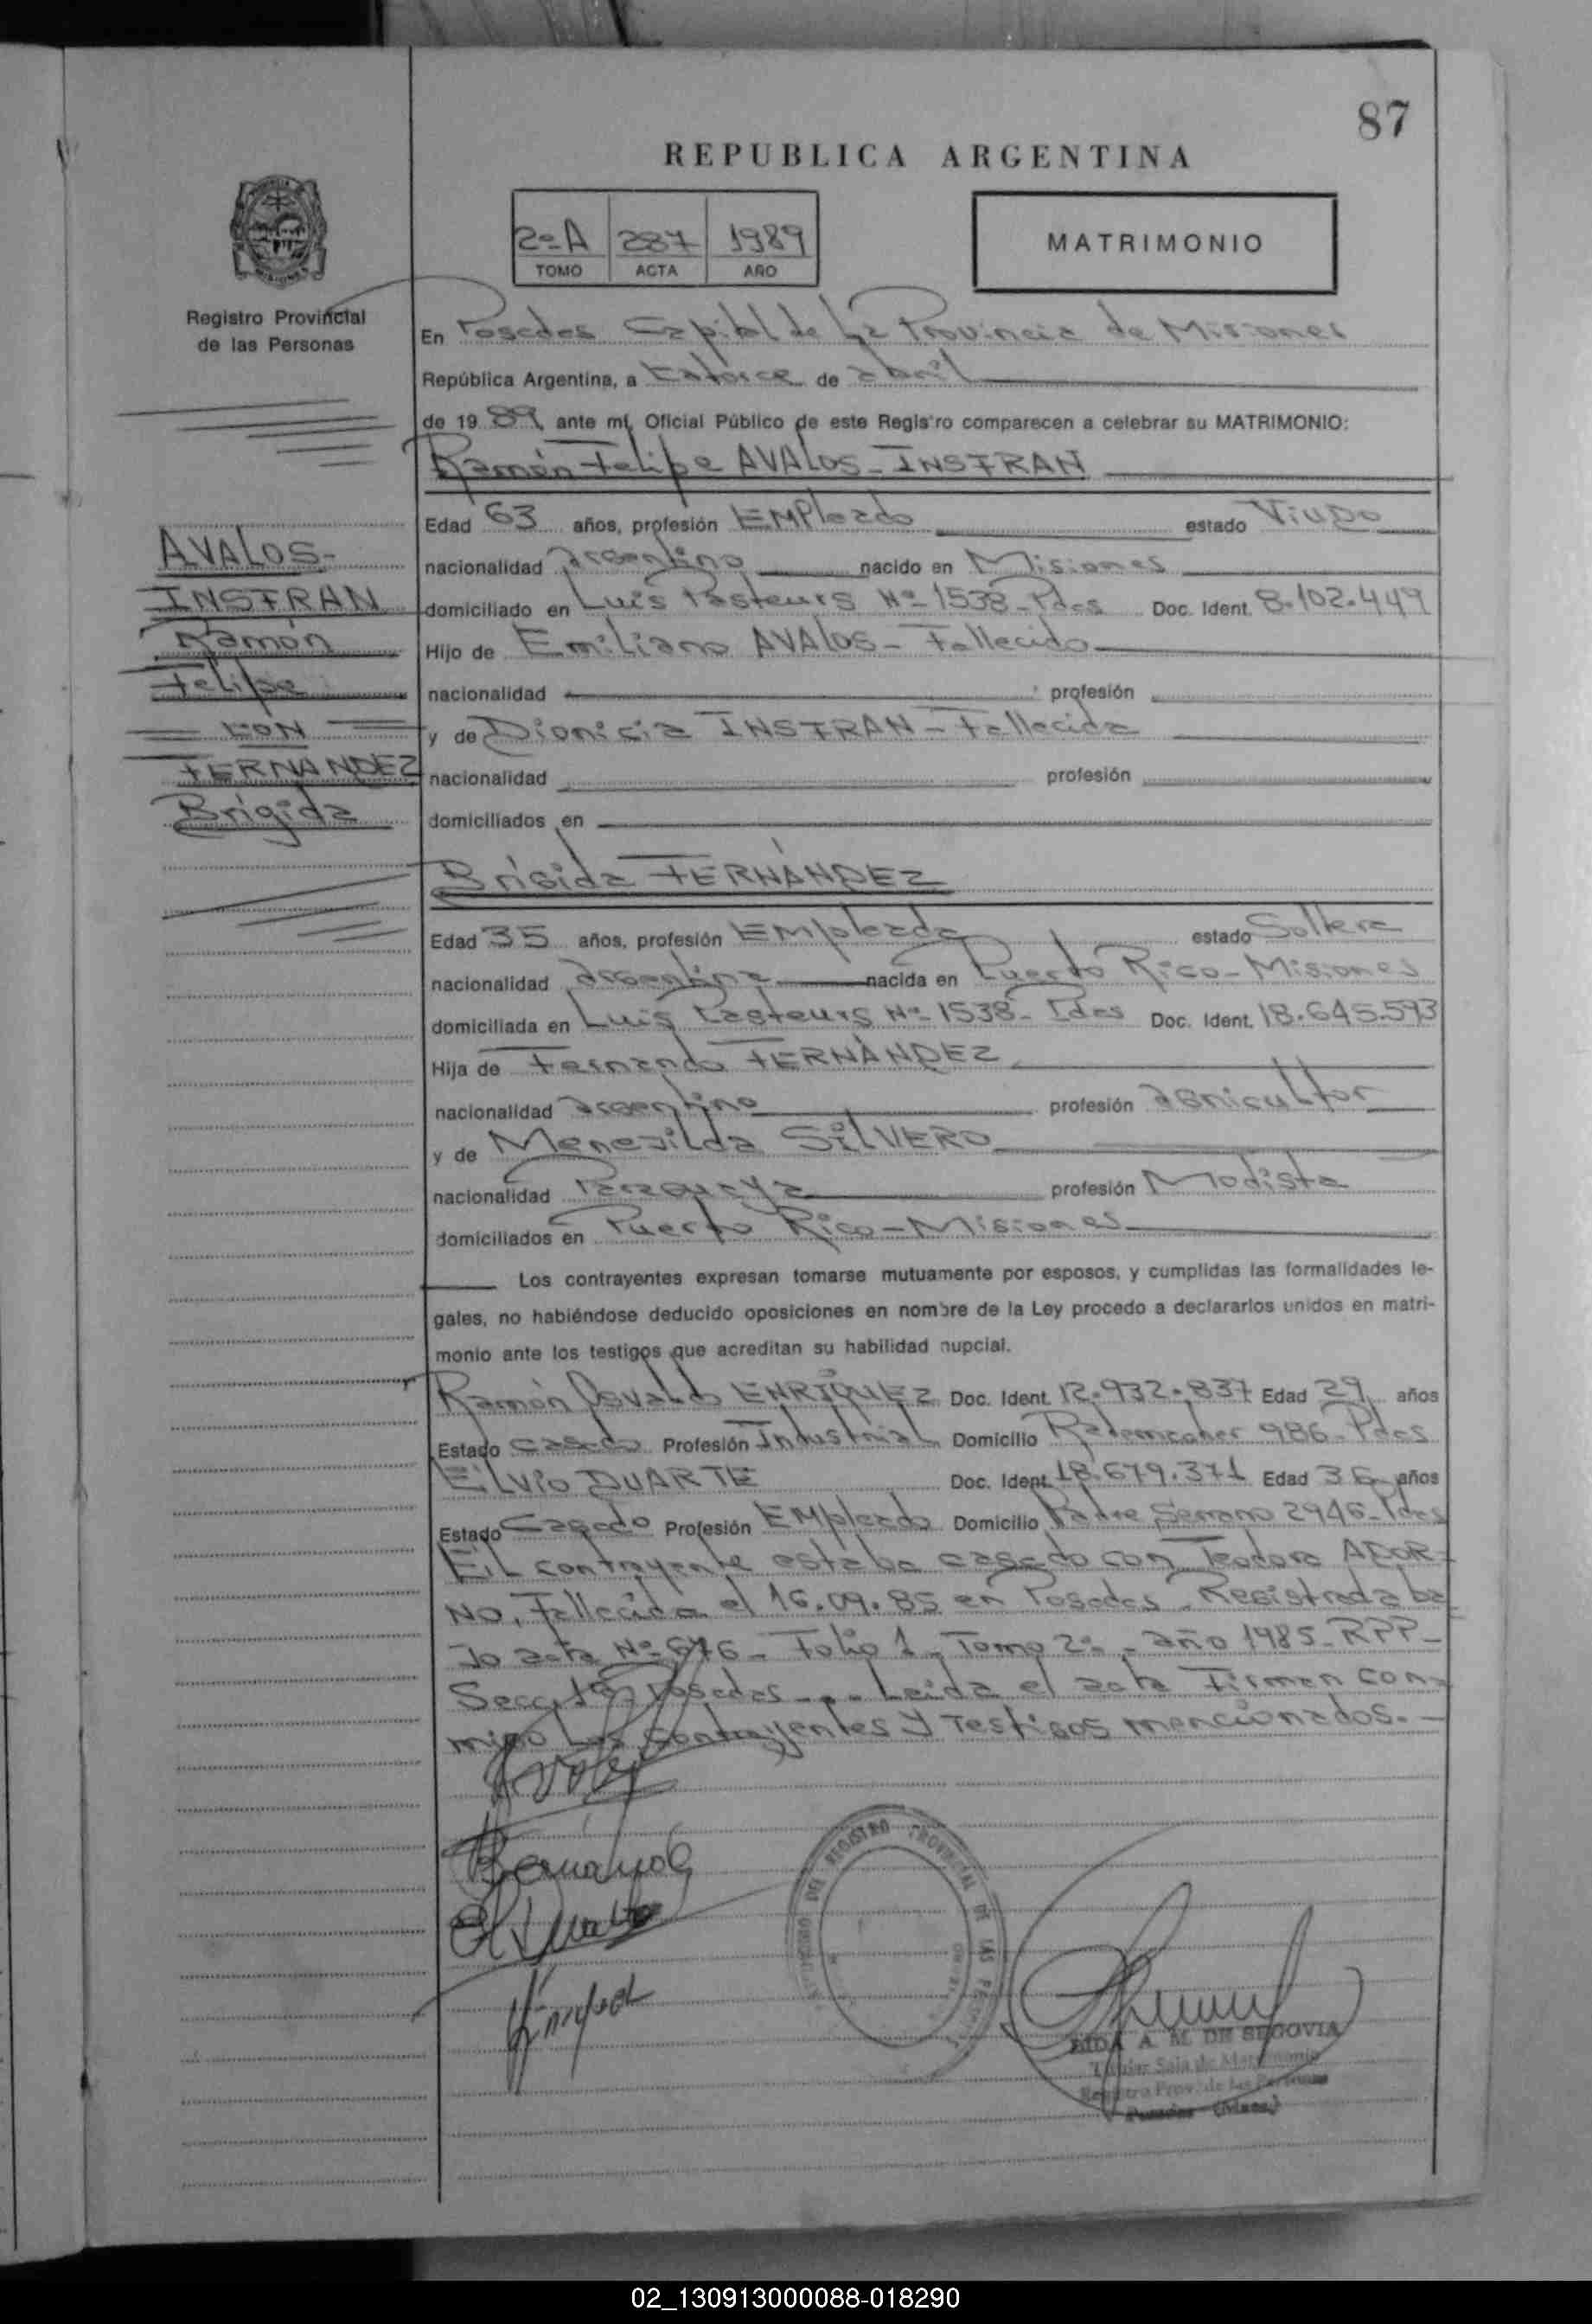 87
REPUBLICA ARGENTINA
2º A 287 1989
TOMO ACTA AÑO
MATRIMONIO
Registro Provincial
de las Personas
En Posadas Capital de la Provincia de Misiones
República Argentina, a catorce de abril
de 1989, ante mí, Oficial Público de este Registro comparecen a celebrar su MATRIMONIO:
Ramón Felipe AVALOS-INSFRAN
Edad 63 años, profesión EMPleado estado Viudo
nacionalidad argentino nacido en Misiones
domiciliado en Luis Pasteurs Nº 1538-Pdas Doc. Ident. 8.102.449
Hijo de Emiliano AVALOS-Fallecido
nacionalidad profesión
y de Dionicia INSFRAN-Fallecida
nacionalidad profesión
domiciliados en
AVALOS-
INSFRAN
Ramón
Felipe
CON
FERNANDEZ
Brígida
Brígida FERNÁNDEZ
Edad 35 años, profesión EMpleada estado Soltera
nacionalidad argentina nacida en Puerto Rico-Misiones
domiciliada en Luis Pasteurs Nº 1538-Pdas Doc. Ident. 18.645.593
Hija de Fernando FERNÁNDEZ
nacionalidad argentino profesión agricultor
y de Menejilda SILVERO
nacionalidad Paraguaya profesión Modista
domiciliados en Puerto Rico-Misiones
Los contrayentes expresan tomarse mutuamente por esposos, y cumplidas las formalidades le-
gales, no habiéndose deducido oposiciones en nombre de la Ley procedo a declararlos unidos en matri-
monio ante los testigos que acreditan su habilidad nupcial.
Ramón Osvaldo ENRÍQUEZ Doc. Ident. 12.932.837 Edad 29 años
Estado casado Profesión Industrial Domicilio 986-Pdas
ElLVio DUARTE Doc. Ident. 18.679.371 Edad 36 años
Estado Casado Profesión EMpleado Domicilio Padre Serrano 2946-Pdas
El contrayente estaba casado con Teodora
NO, Fallecida el 16.09.85 en Posadas. Registrada ba
Jo acta Nº 676-Folio 1-Tomo 2º-año 1985-RPP-
Posadas... Leida el acta Firman con-
migo los contrayentes y Testigos mencionados.-
DEL REGISTRO PROVINCIAL DE LAS
A. M. DE SEGOVIA
Titular Sala de Matrimonio
Registro Prov. de las Personas
Posadas (Mnes.)
02_130913000088-018290